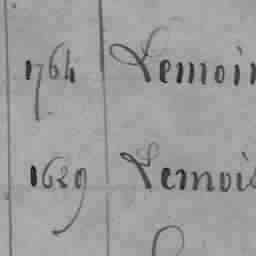 1764 Lemoin
1629 Lemois